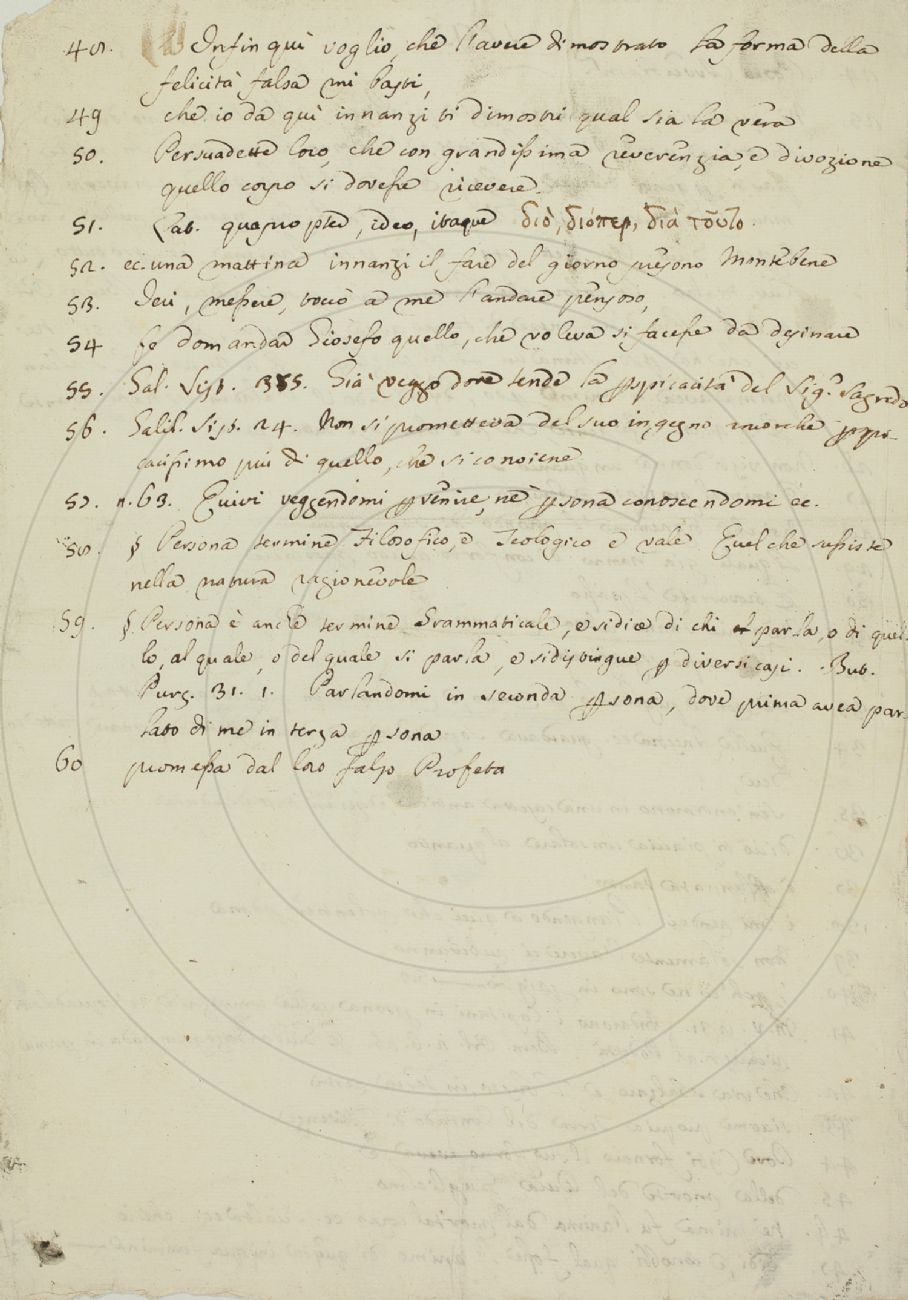 48. Infin quì voglio, che l'avere dimostrato la forma della
felicità falsa mi basti,
49 che io da quì innanzi ti dimostri qual sia la vera
50. Persuadette loro, che con grandissima reverenzia, e divozione
quello corpo si dovesse ricevere.
51. Lat. quapropter, ideo, itaque διὸ, διόπερ, διὰ τοῦτο.
52. ec. una mattina innanzi il fare del giorno presono Montebene
53. Ieri, messere, toccò a me l'andare pensoso,
54 fe domandar Giosefo quello, che voleva si facesse da desinare
55. Gal. Sist. 385. Già veggo dove tende la ꝑspicacità del Sig.r Sagredo
56. Galil. Sist. 24. Non si prometteva del suo ingegno ancorchè ꝑspi-
cacissimo più di quello, che si conviene
57. n. 63. Quivi veggendomi ꝑvenire, nè ꝑsona conoscendomi ec.
58. § Persona termine Filosofico, e Teologico e vale Quel che sussiste
nella natura ragionevole
59. § Persona è anche termine Grammaticale, e si dice di chi parla, o di quel-
lo, al quale, o del quale si parla, e si distingue ꝑ diversi casi. But.
Purg. 31. 1. Parlandomi in seconda ꝑsona, dove prima avea par-
lato di me in terza ꝑsona
60 promessa dal loro falso Profeta